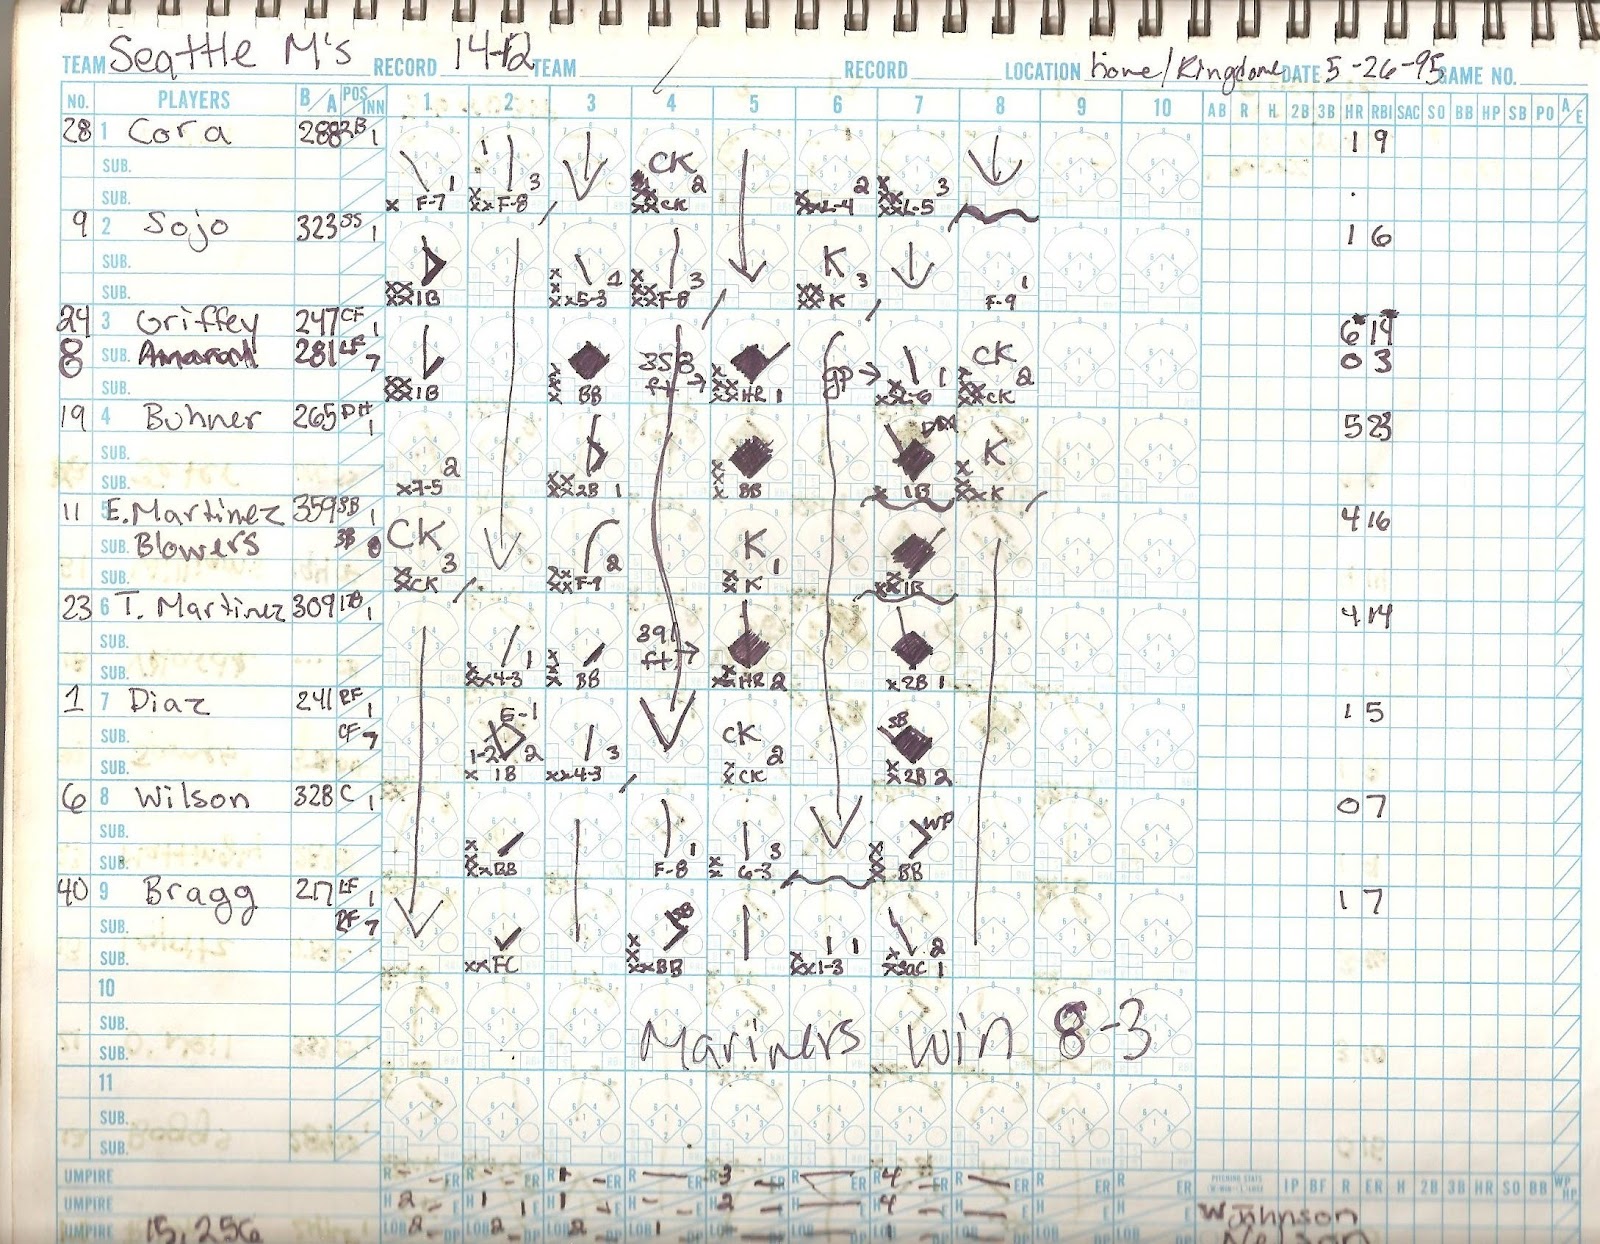 TEAM Seattle M's RECORD 14-12 TEAM RECORD LOCATION home/Kingdome DATE 5-26-95 GAME NO.
NO. PLAYERS B/A POS INN 1 2 3 4 5 6 7 8 9 10 AB R H 2B 3B HR RBI SAC SO BB HP SB PO A/E
28 1 Cora 288 2B 1 1 9
SUB. CK
SUB. F-7 1 F-8 3 CK 2 L-4 2 L-5 3
9 2 Sojo 323 SS 1 1 6
SUB. K
SUB. 1B 5-3 1 F-8 3 K 3 F-9 1
24 3 Griffey 247 CF 1 6 14
8 SUB. Amaral 281 LF 7 358 ft CK 0 3
SUB. 1B BB HR 1 L-6 1 CK 2
19 4 Buhner 265 DH 1 5 23
SUB. K
SUB. 7-5 2 2B 1 BB 1B K
11 5 E. Martinez 359 3B 1 4 16
SUB. Blowers 3B 8 CK K
SUB. CK 3 F-9 2 K 1 1B
23 6 T. Martinez 309 1B 1 4 14
SUB. 391 ft
SUB. 4-3 1 BB HR 2 2B 1
1 7 Diaz 241 RF 1 1 5
SUB. CF 7 E-1 1-2 2 CK SB
SUB. 1B 4-3 3 CK 2 2B 2
6 8 Wilson 328 C 1 0 7
SUB. WP
SUB. BB F-8 1 6-3 3 BB
40 9 Bragg 217 LF 1 1 7
SUB. RF 7 SB
SUB. FC BB 1-3 1 Sac 1 2
10
SUB. Mariners win 8-3
SUB.
11
SUB.
SUB.
UMPIRE R - ER R - ER R 1 ER R - ER R 3 ER R - ER R 4 ER R - ER R ER R ER IP BF R ER H 2B 3B HR SO BB WP HP
UMPIRE H 2 E H 1 1 E H 1 E H - E H 2 E H E H 4 E H E H E H E W Johnson
UMPIRE 15,256 LOB 2 DP LOB 2 DP LOB 2 DP LOB 1 DP LOB DP LOB DP LOB 1 DP LOB DP LOB DP LOB DP Nelson